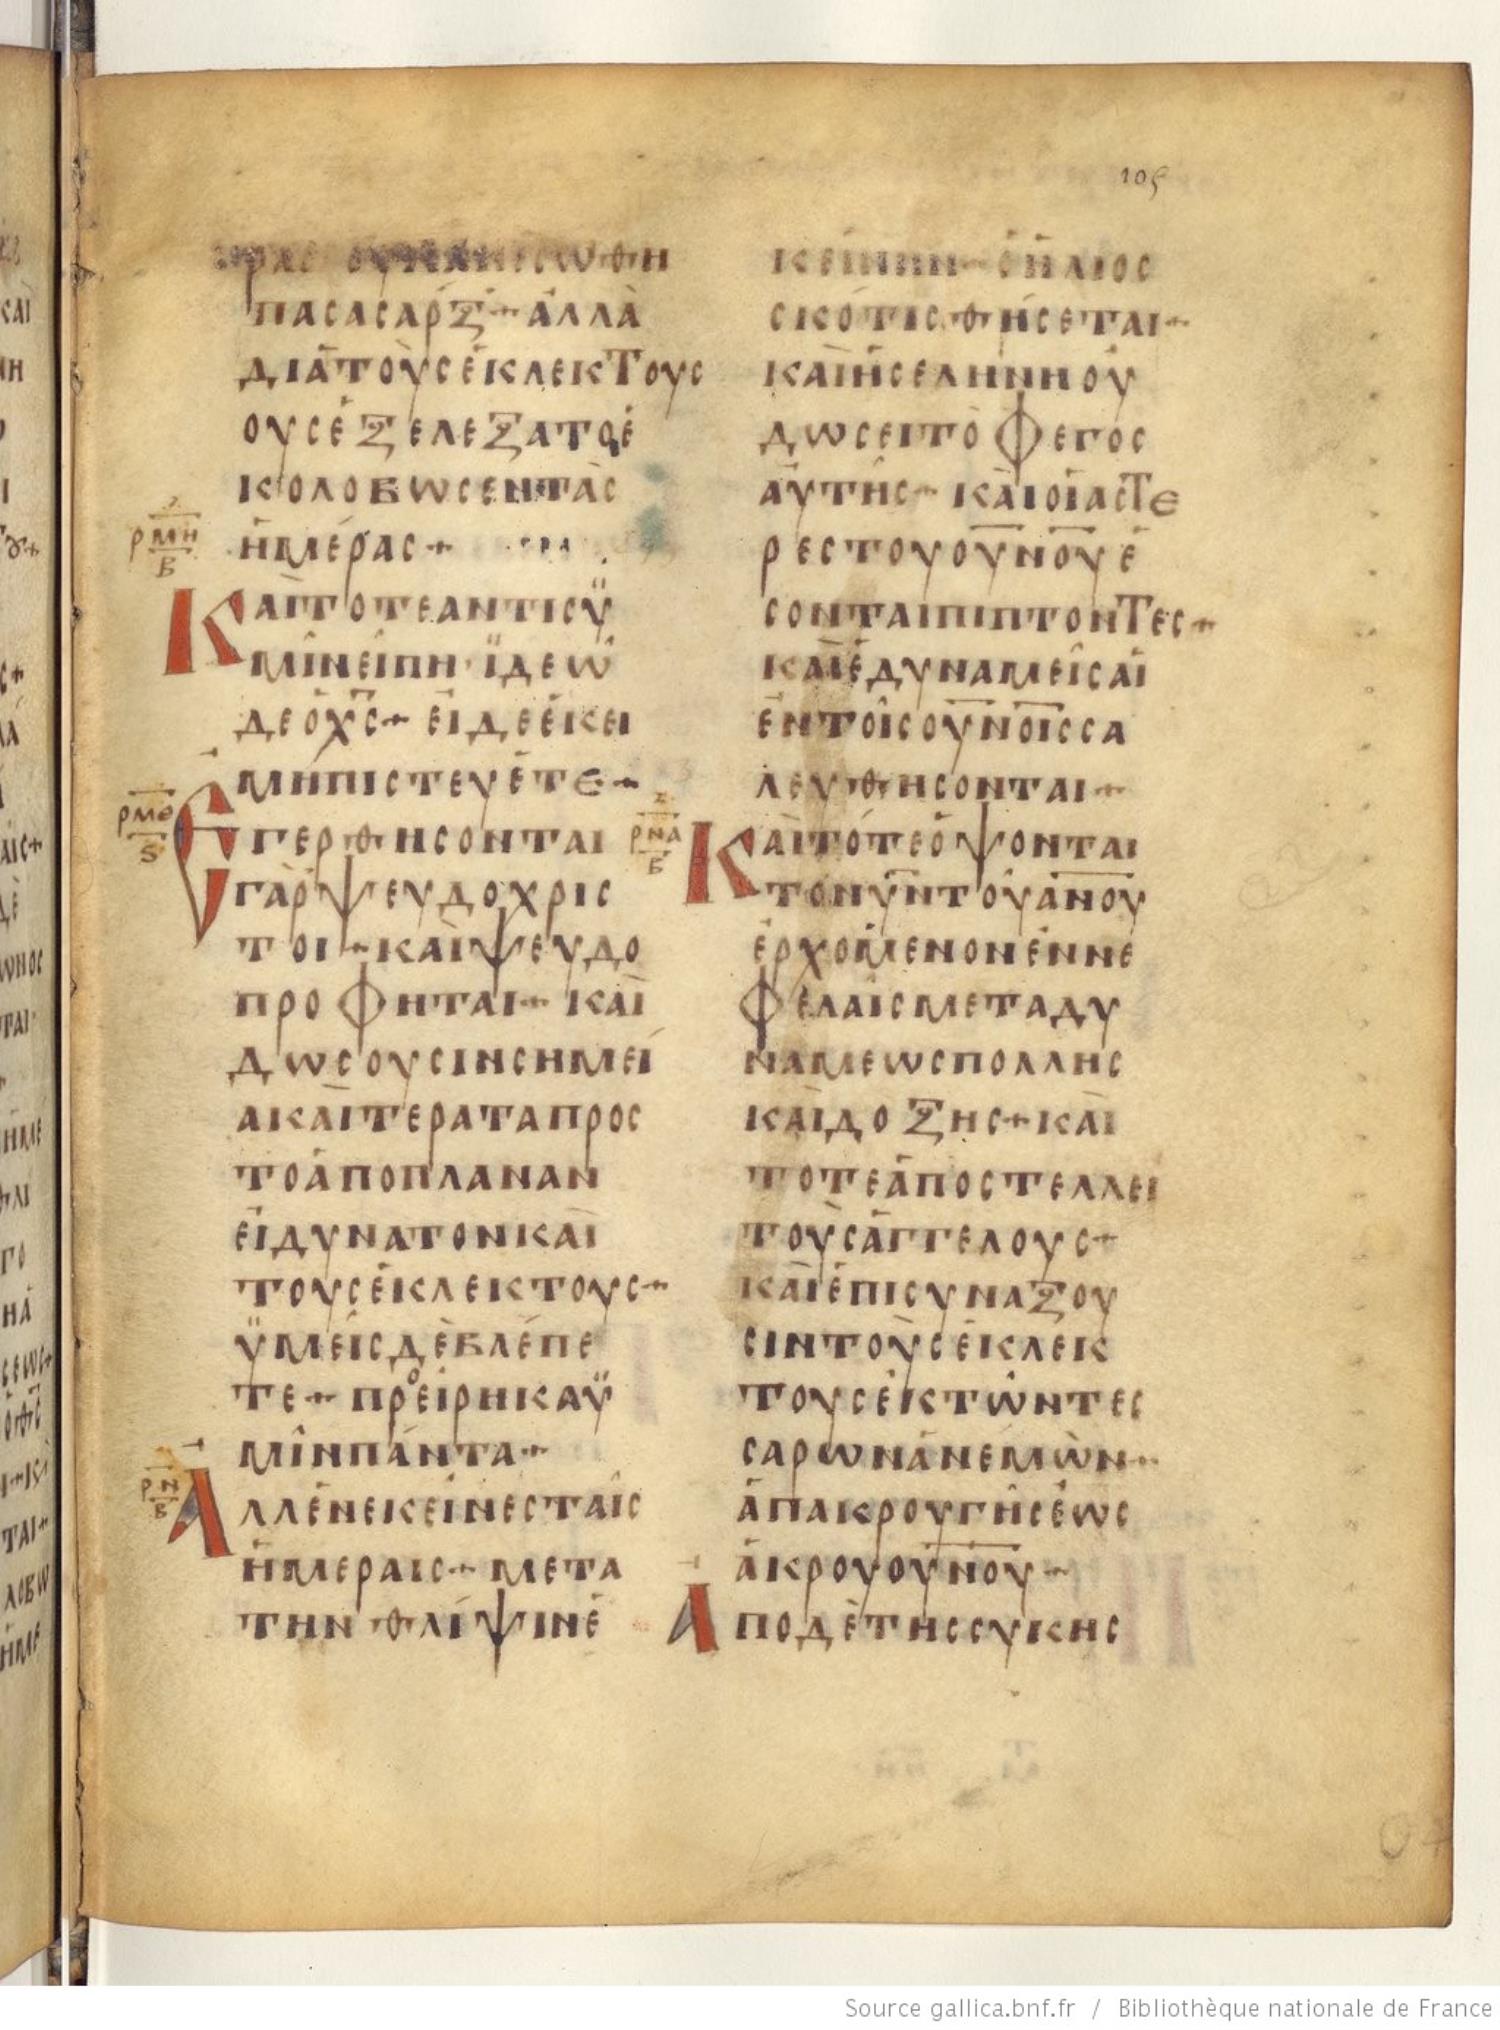 105
ρας ουκ αν εσωθη
πασα σαρξ + ἀλλὰ
διὰ τοὺς ἐκλεκτους
ους ἐξελεξατο ἐ
κολοβωσεν τὰς
ἡμέρας +
ρμη
β
Καὶ τοτε αν τις ϋ
μῖν εἴπη · ἴδε ὧ
δε ὁ χ̅ς̅ + εἰ δε ἐκει
μὴ πιστευετε +
ρμθ
ς
Ἐγερθησονται
γὰρ ψευδοχρις
τοι + καὶ ψευδο
προφηται + καὶ
δωσουσιν σημεί
α καὶ τερατα προς
το ἀποπλαναν
εἰ δυνατον καὶ
τους ἐκλεκτους +
ϋμεῖς δὲ βλέπε
τε + προείρηκα ϋ
μῖν πάντα +
ρν
β
Ἀλλ ἐν εκείνες ταῖς
ἡμεραις + μετα
την θλίψιν ἐ
κείνην ὁ ἥλιος
σκοτισθήσεται +
καὶ ἡ σεληνη οὐ
δωσει τὸ φεγος
ἀυτῆς + καὶ οἱ αστε
ρες του ο̅υ̅ν̅ο̅υ̅ ἐ
σονται πιπτοντες +
καὶ ἑ δυναμεις αἱ
ἐν τοῖς ο̅υ̅ν̅ο̅ι̅ς̅ σα
λευθησονται +
ρνα
β
Καὶ τότε ὀψονται
τον υ̅ν̅ του α̅ν̅ο̅υ̅
ἐρχομενον ἐν νε
φελαις μετα δυ
ναμεως πολλης
καὶ δοξης + καὶ
τοτε ἀποστελλει
τοὺς ἀγγελους +
καὶ ἐπισυναξου
σιν τοὺς ἐκλεκ
τους ἐκ τῶν τες
σαρων ἀνεμων +
ἀπ ακρου γῆς ἑως
ἀκρου ο̅υ̅ν̅ο̅υ̅ +
Ἀπο δὲ της συκης
Source gallica.bnf.fr / Bibliothèque nationale de France